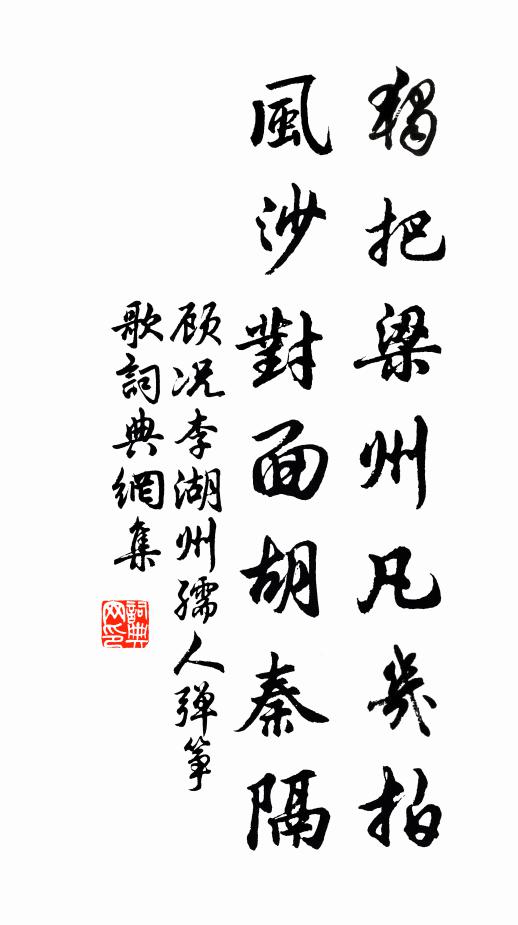 獨把梁州凡幾拍
風沙對面胡秦隔
顾况李湖州孺人弹筝
歌詞典網集
詞典網印